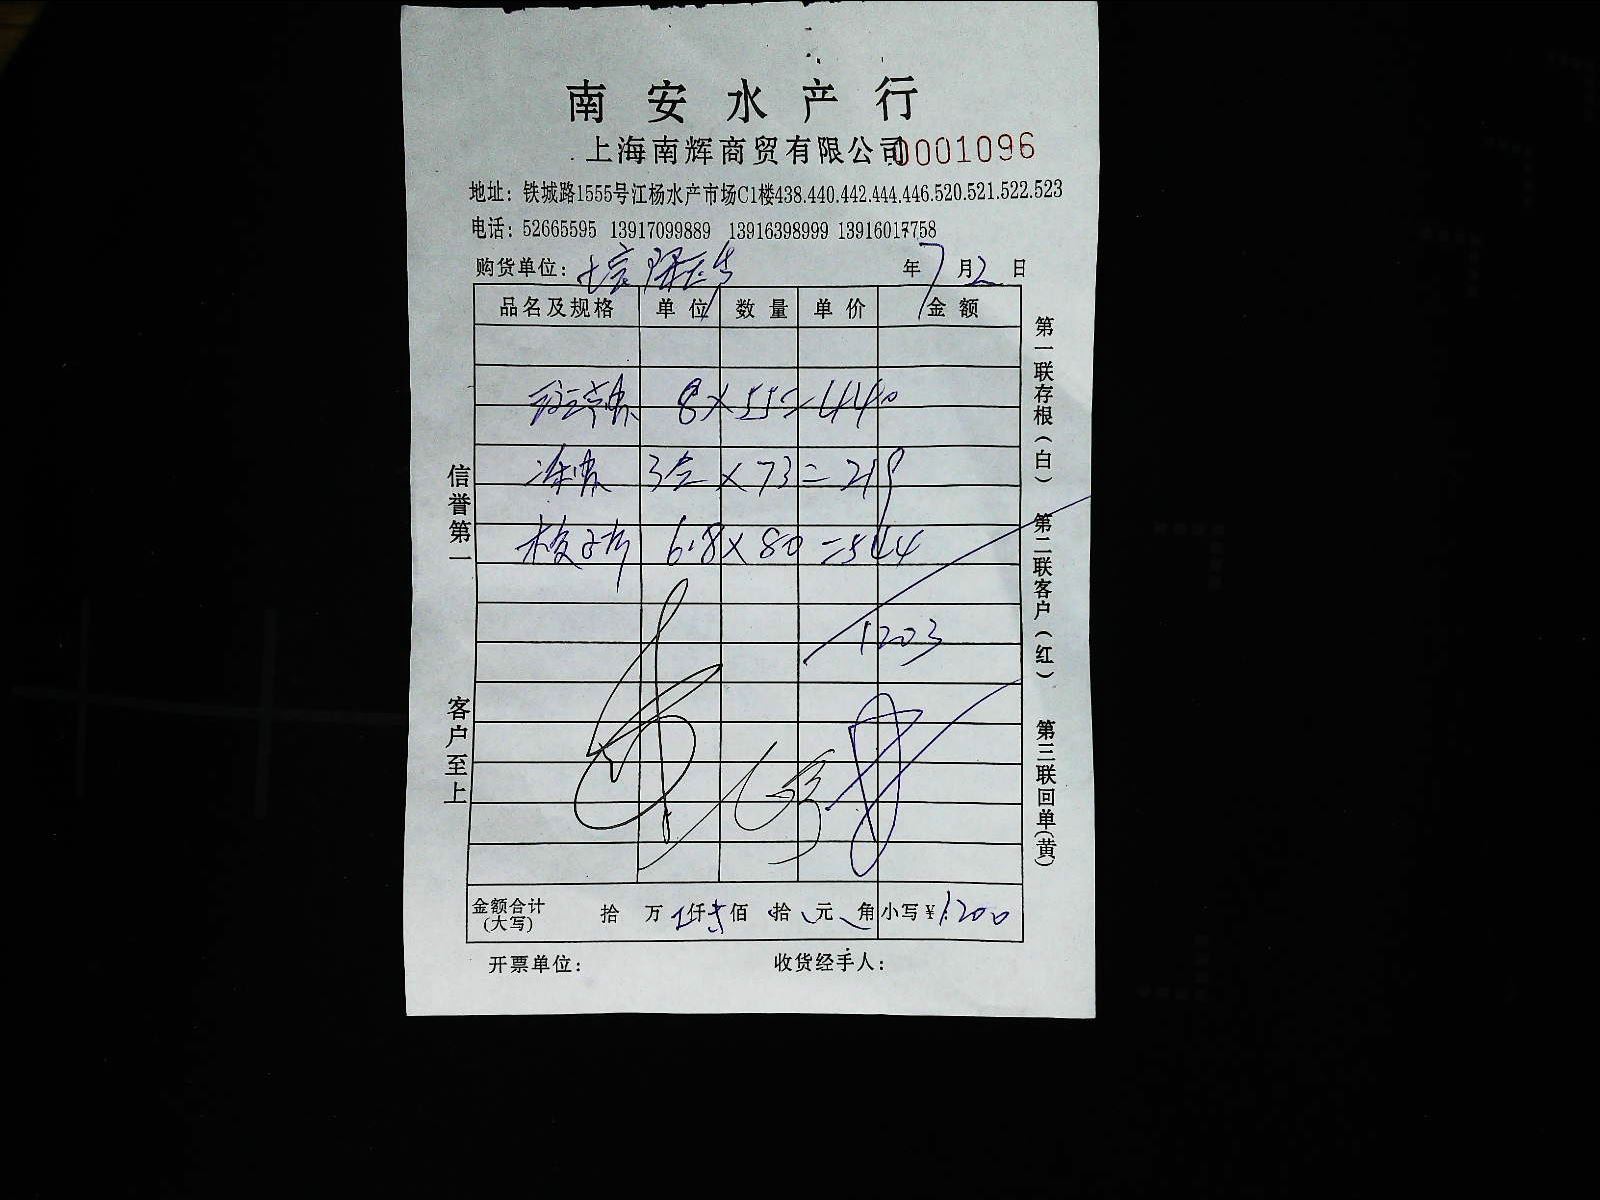 南安水产行
上海南辉商贸有限公司 0001096
地址：铁城路1555号江杨水产市场C1楼438.440.442.444.446.520.521.522.523
电话：52665595 13917099889 13916398999 13916017758
购货单位： 年7月2日
品名及规格 单位 数量 单价 金额
8×55=440
3合×73=219
梭子片 6.8×80=544
1203
金额合计(大写) 拾 万 仟 佰 拾 元 角 小写¥1200
开票单位： 收货经手人：
信誉第一 客户至上
第一联存根(白) 第二联客户(红) 第三联回单(黄)